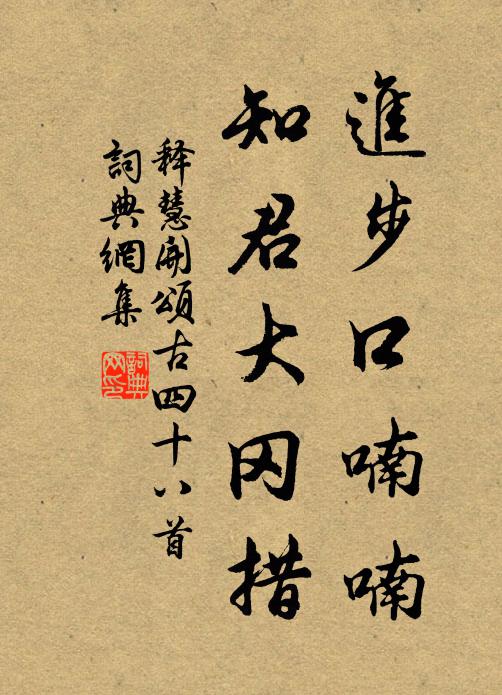 進步口喃喃
知君大冈措
释慧開頌古四十八首
詞典網集
詞典网印